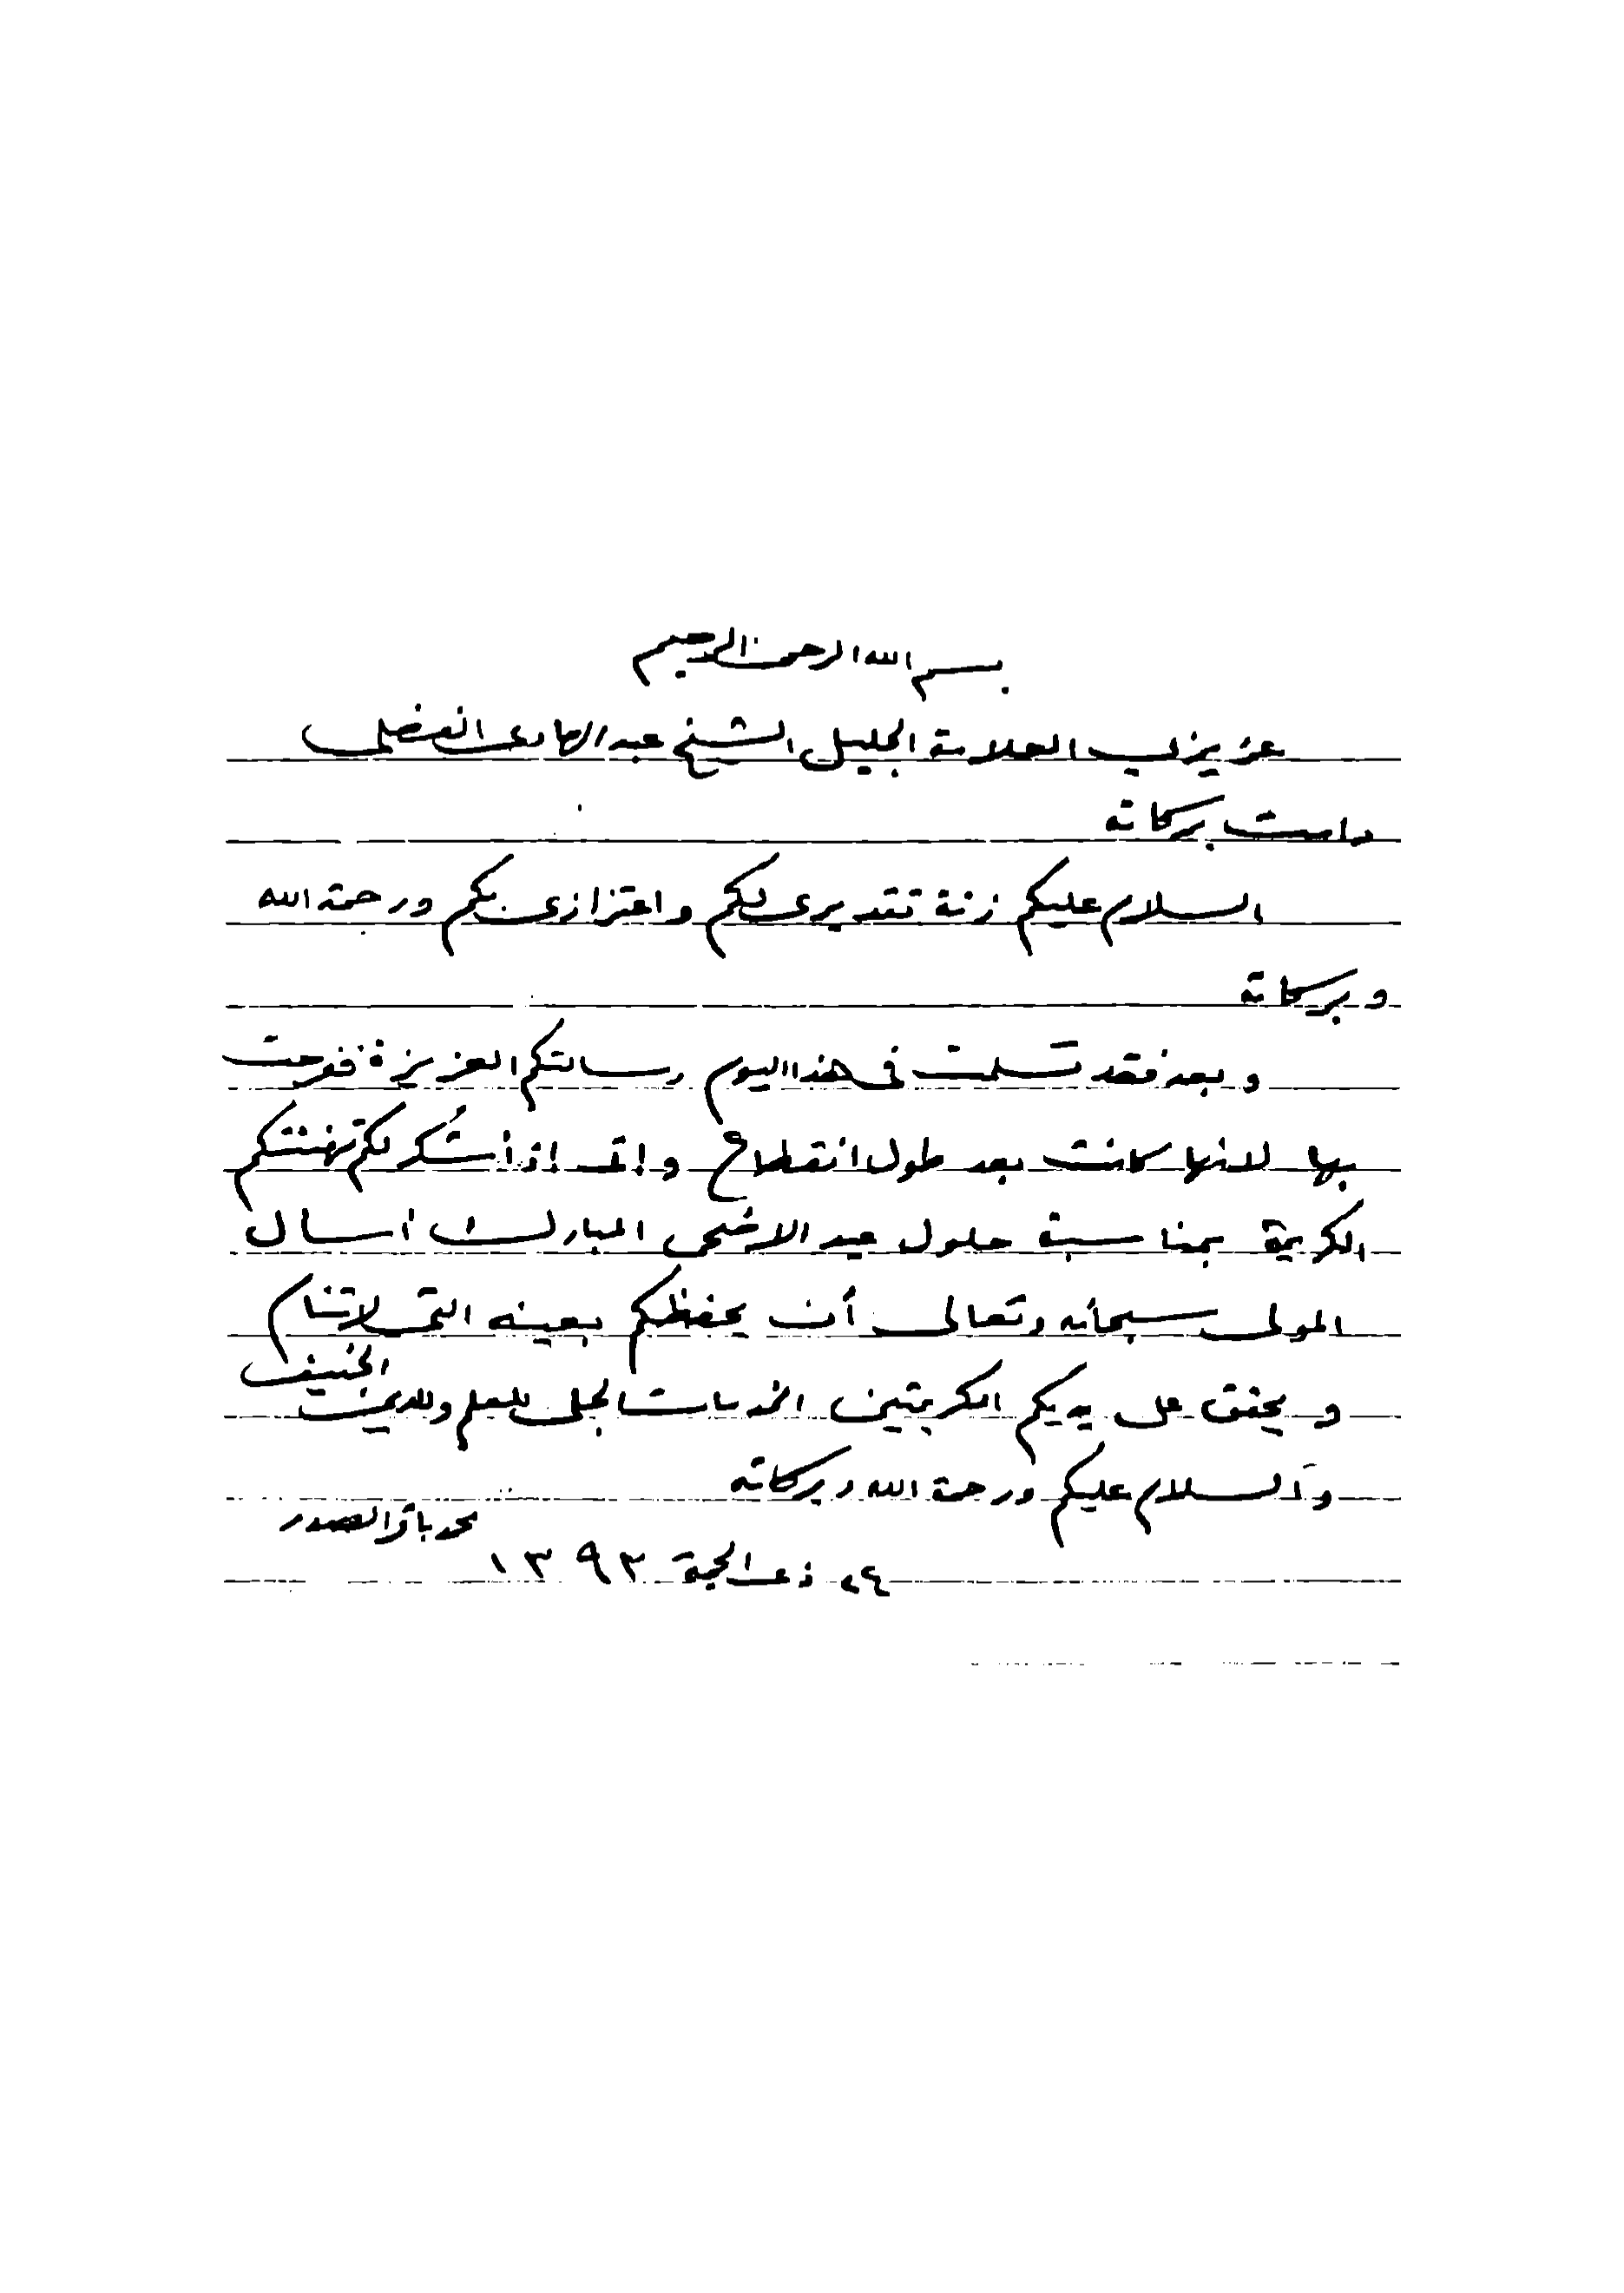 بسم الله الرحمن الرحيم
عزيزي العلامة الجليل الشيخ عبد الهادي الفضلي
دامت بركاته
السلام عليكم زنة تقديري لكم واعتزازي بكم ورحمة الله
وبركاته
وبعد فقد تسلمت في هذا اليوم رسالتكم العزيزة ففرحت
بها لانها كانت بعد طول انقطاع وإني إذ أشكر لكم تهنئتكم
الكريمة بمناسبة حلول عيد الاضحى المبارك أسال
المولى سبحانه وتعالى أن يحفظكم بعينه التي لا تنام
ويحقق على يديكم الكريمتين الخدمات الجلى للعلم وللدين الحنيف
والسلام عليكم ورحمة الله وبركاته
محمد باقر الصدر
٢٤ ذي الحجة ١٣٩٢